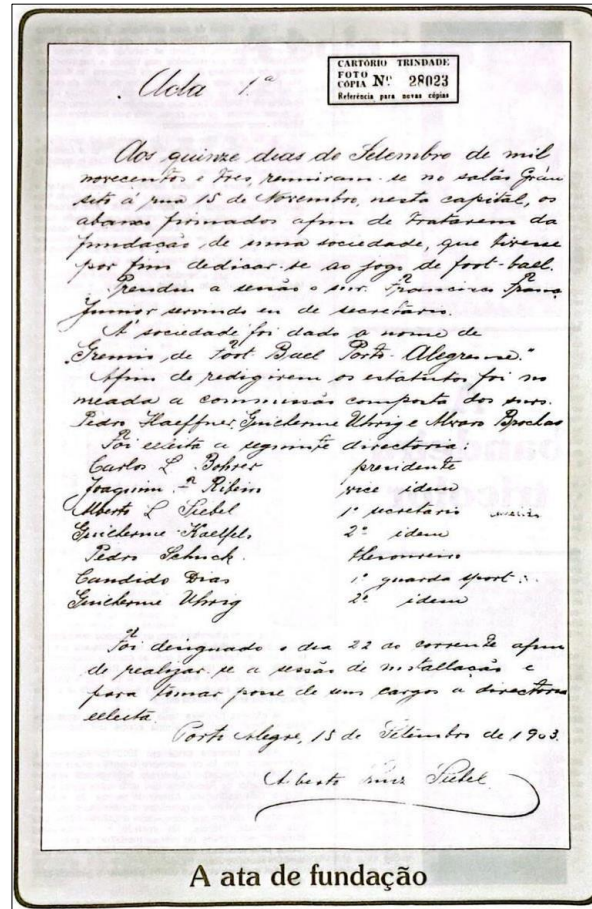 CARTÓRIO TRINDADE
FOTO
CÓPIA Nº 28023
Referência para novas cópias
Acta 1ª
Aos quinze dias do Setembro de mil
novecentos e tres, reuniram-se no salão Grau
sito á rua 15 de Novembro, nesta capital, os
abaixo firmados afim de tratarem da
fundação de uma sociedade, que tivesse
por fim dedicar-se ao jogo de foot-ball.
a sessão o snr. Francisco
Junior servindo eu de secretario.
A' sociedade foi dado o nome de
"Gremio de Foot Ball Porto Alegrense."
Afim de redigirem os estatutos foi no
meada a commissão composta dos snrs.
Pedro Haeffner, Guilherme Uhrig e Alvaro Brochado
Foi eleita a seguinte directoria:
Carlos L. Bohrer presidente
Joaquim Fº Ribeiro vice idem
Alberto L Siebel 1º secretario
Guilherme Kallfelz 2º idem
Pedro Schuck. thesoureiro
Candido Dias 1º guarda sport
Guilherme Uhrig 2º idem
Foi designado o dia 22 do corrente afim
de realizar-se a sessão de installação e
para tomar posse de seus cargos a directoria
eleita.
Porto Alegre, 15 de Setembro de 1903.
Alberto Luiz Siebel
A ata de fundação